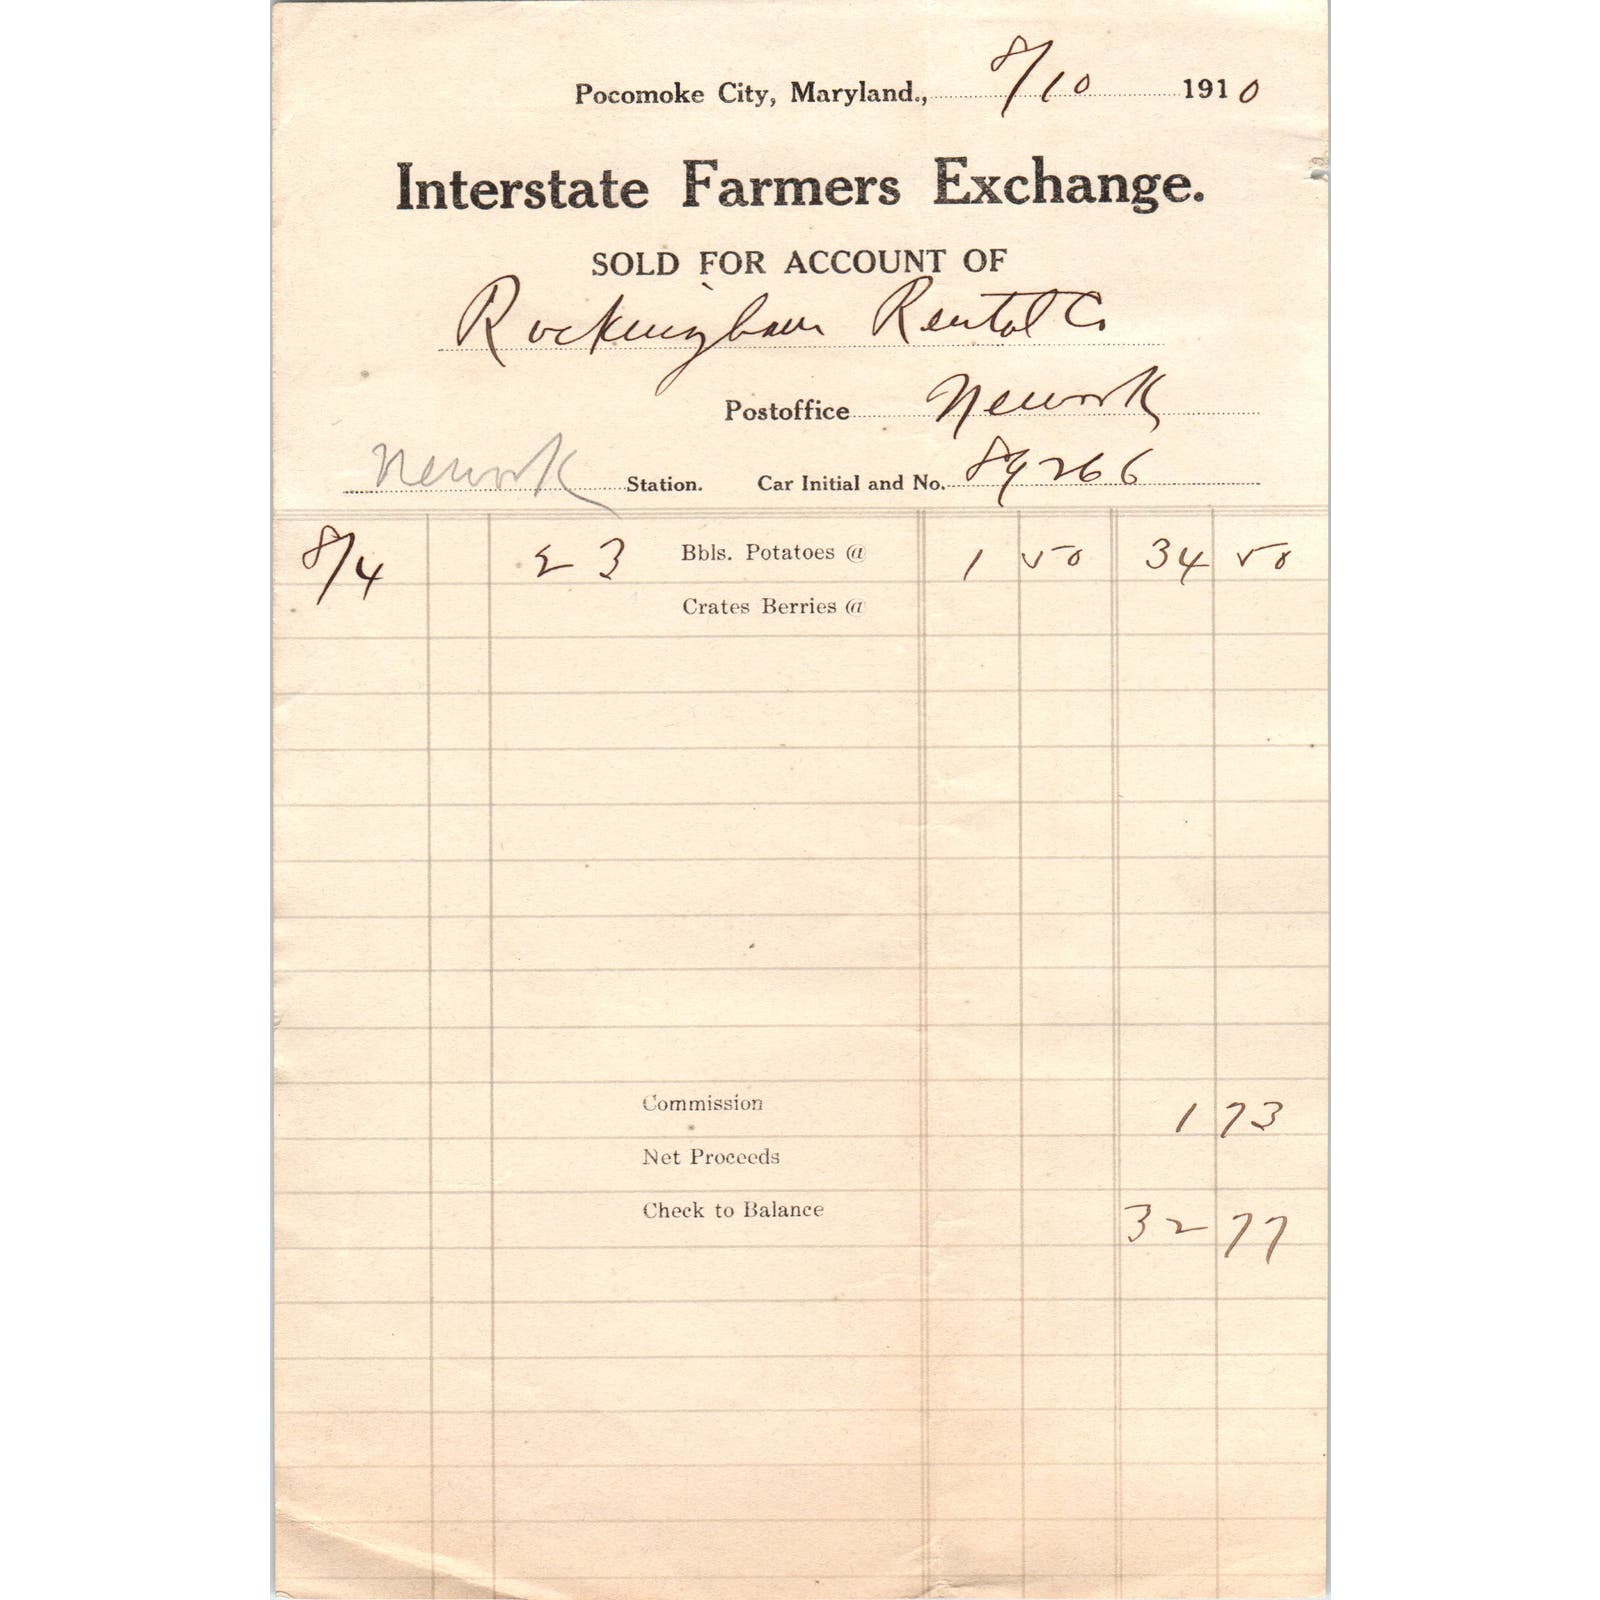 Pocomoke City, Maryland., 8/10 1910
Interstate Farmers Exchange.
SOLD FOR ACCOUNT OF
Rockingham Rental Co
Postoffice Newark
Newark Station. Car Initial and No. 89266
8/4 23 Bbls. Potatoes @ 1 50 34 50
Crates Berries @
Commission 1 73
Net Proceeds
Check to Balance 32 77